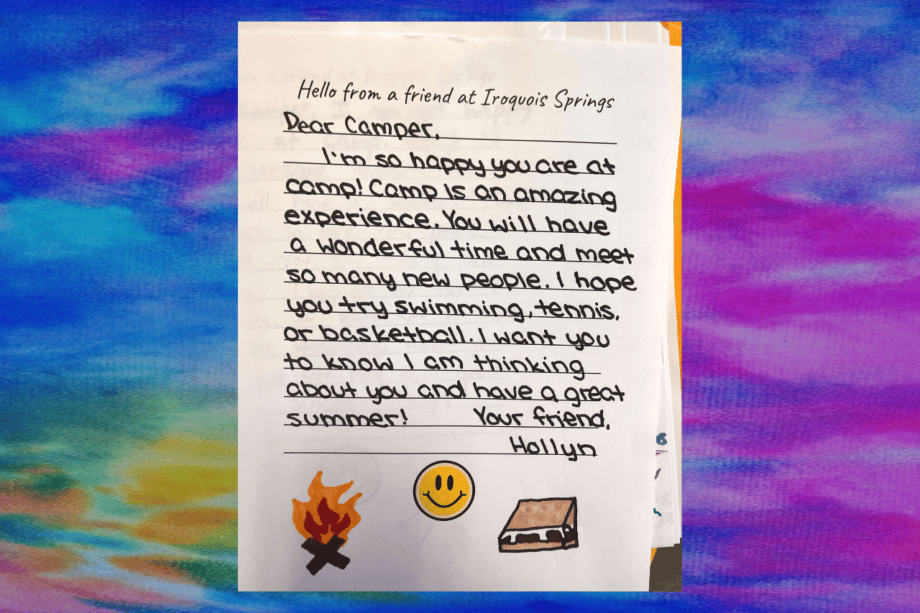 Hello from a friend at Iroquois Springs
Dear Camper,
I'm so happy you are at
camp! Camp is an amazing
experience. You will have
a wonderful time and meet
so many new people. I hope
you try swimming, tennis,
or basketball. I want you
to know I am thinking
about you and have a great
summer! Your friend,
Hollyn